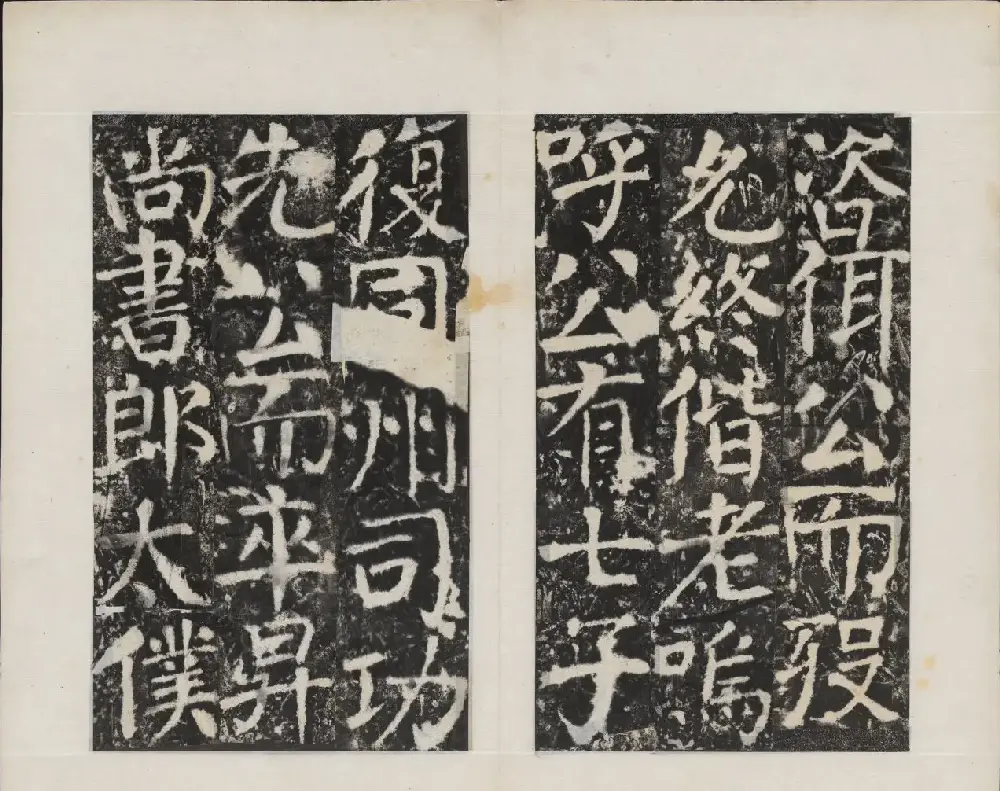 公而歿
終偕老嗚
呼公有七子
復同州司功
先公而卒昇
尚書郎大僕